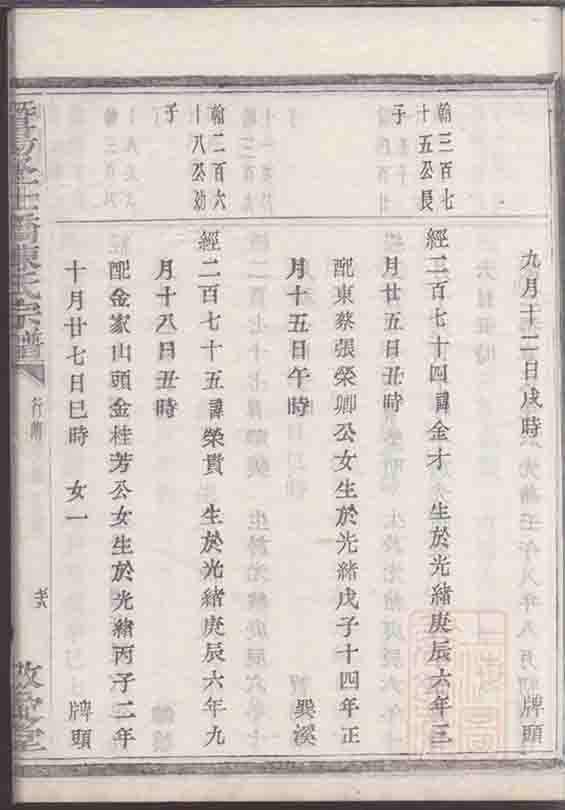 九月十二日戌時 牌頭
翰三百七
十五公長
子
經二百七十四諱金才 生於光緒庚辰六年三
月廿五日丑時
配東蔡張榮卿公女生於光緒戊子十四年正
月十五日午時 巽溪
翰二百六
十八公幼
子
經二百七十五諱榮貴 生於光緒庚辰六年九
月十八日丑時
配金家山頭金桂芳公女生於光緒丙子二年
十月廿七日巳時 女一 牌頭
陳氏宗譜
行傳
敬定堂